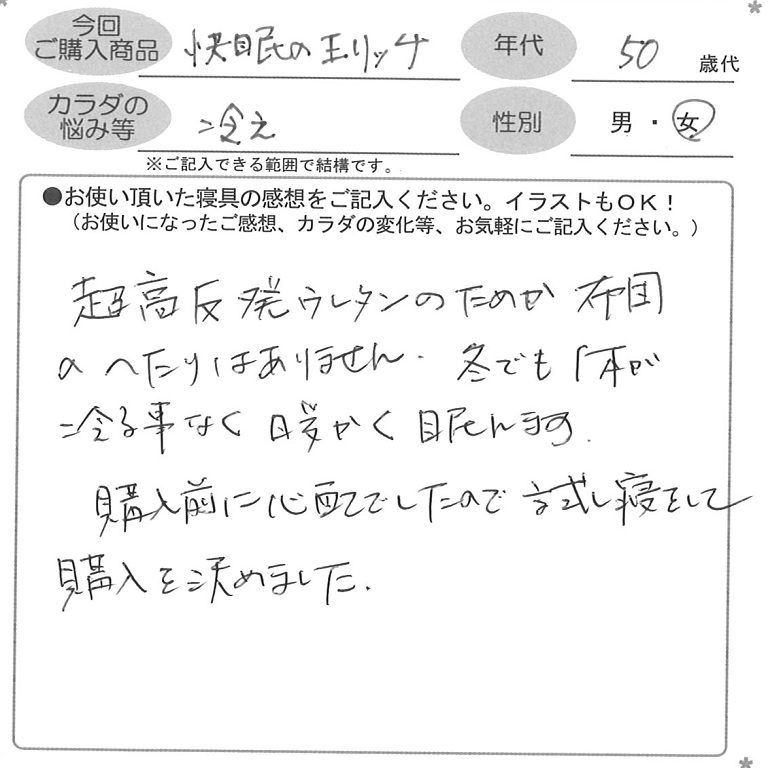 今回
ご購入商品
快眠の王リッチ
年代
50
歳代
カラダの
悩み等
冷え
性別
男・女
※ご記入できる範囲で結構です。
●お使い頂いた寝具の感想をご記入ください。イラストもOK！
（お使いになったご感想、カラダの変化等、お気軽にご記入ください。）
超高反発ウレタンのためか 布団
のへたりはありません. 冬でも体が
冷る事なく暖かく眠れます.
購入前に心配でしたので試し寝をして
購入を決めました.